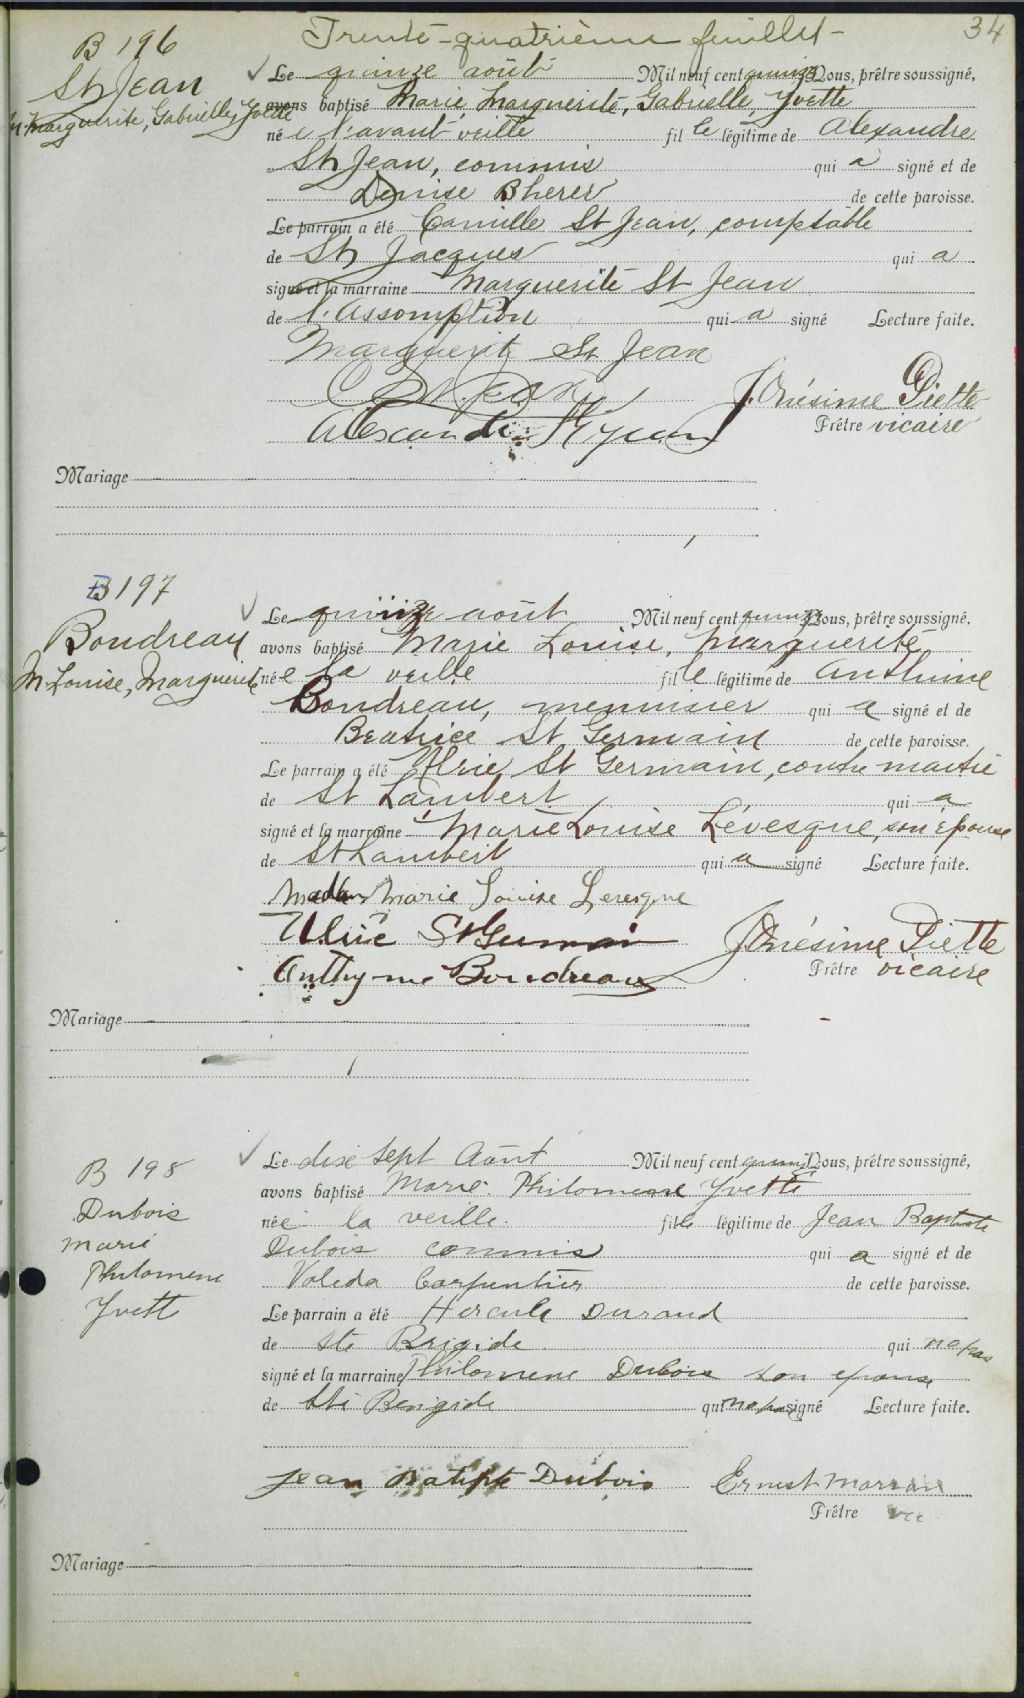 Trente-quatrième feuillet -
34
B 196
St Jean
M. Marguerite, Gabrielle, Yvette
Le quinze août Mil neuf cent quinze Nous, prêtre soussigné,
avons baptisé Marie, Marguerite, Gabrielle, Yvette
née l'avant veille fille légitime de Alexandre
St Jean, commis qui a signé et de
Denise Bherer de cette paroisse.
Le parrain a été Camille St Jean, comptable
de St Jacques qui a
signé et la marraine Marguerite St Jean
de l'Assomption qui a signé Lecture faite.
Marguerite St Jean
C St Jean
Alexandre St Jean
J. Onésime Piette
Prêtre vicaire
Mariage
B 197
Boudreau
M. Louise, Marguerite
Le quinze août Mil neuf cent quinze Nous, prêtre soussigné,
avons baptisé Marie Louise, Marguerite
née la veille fille légitime de Anthime
Boudreau, menuisier qui a signé et de
Beatrice St Germain de cette paroisse.
Le parrain a été Ulric St Germain, contre maitre
de St Lambert qui a
signé et la marraine Marie Louise Lévesque, son épouse
de St Lambert qui a signé Lecture faite.
Madam Marie Louise Levesque
Ulric St Germain
Anthyme Boudreau
J. Onésime Piette
Prêtre vicaire
Mariage
B 198
Dubois
Marie
Philomene
Yvett
Le dix sept Août Mil neuf cent quinze Nous, prêtre soussigné,
avons baptisé Marie Philomene Yvette
née la veille. fille légitime de Jean Baptiste
Dubois commis qui a signé et de
Valeda Carpentier de cette paroisse.
Le parrain a été Hercule Durand
de Ste Brigide qui na pas
signé et la marraine Philomene Dubois son epouse
de Ste Brigide qui na pas signé Lecture faite.
Jean Batipte Dubois
Ernest
Prêtre vic
Mariage